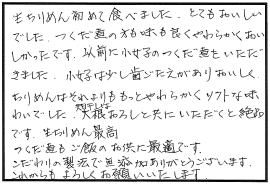 生ちりめん初めて食べました。とてもおいしい
でした。つくだ煮の方も味も良くやわらかくおい
しかったです。以前に小女子のつくだ煮をいただ
きました。小女子は少し歯ごたえがありおいしく、
ちりめんはそれよりももっとやわらかくソフトな味
わいでした。大根おろしと共にいただくと絶品
です。生ちりめん最高
つくだ煮もご飯のお供に最適です。
こだわりの製法で無添加ありがとうございます。
これからもよろしくお願いいたします。